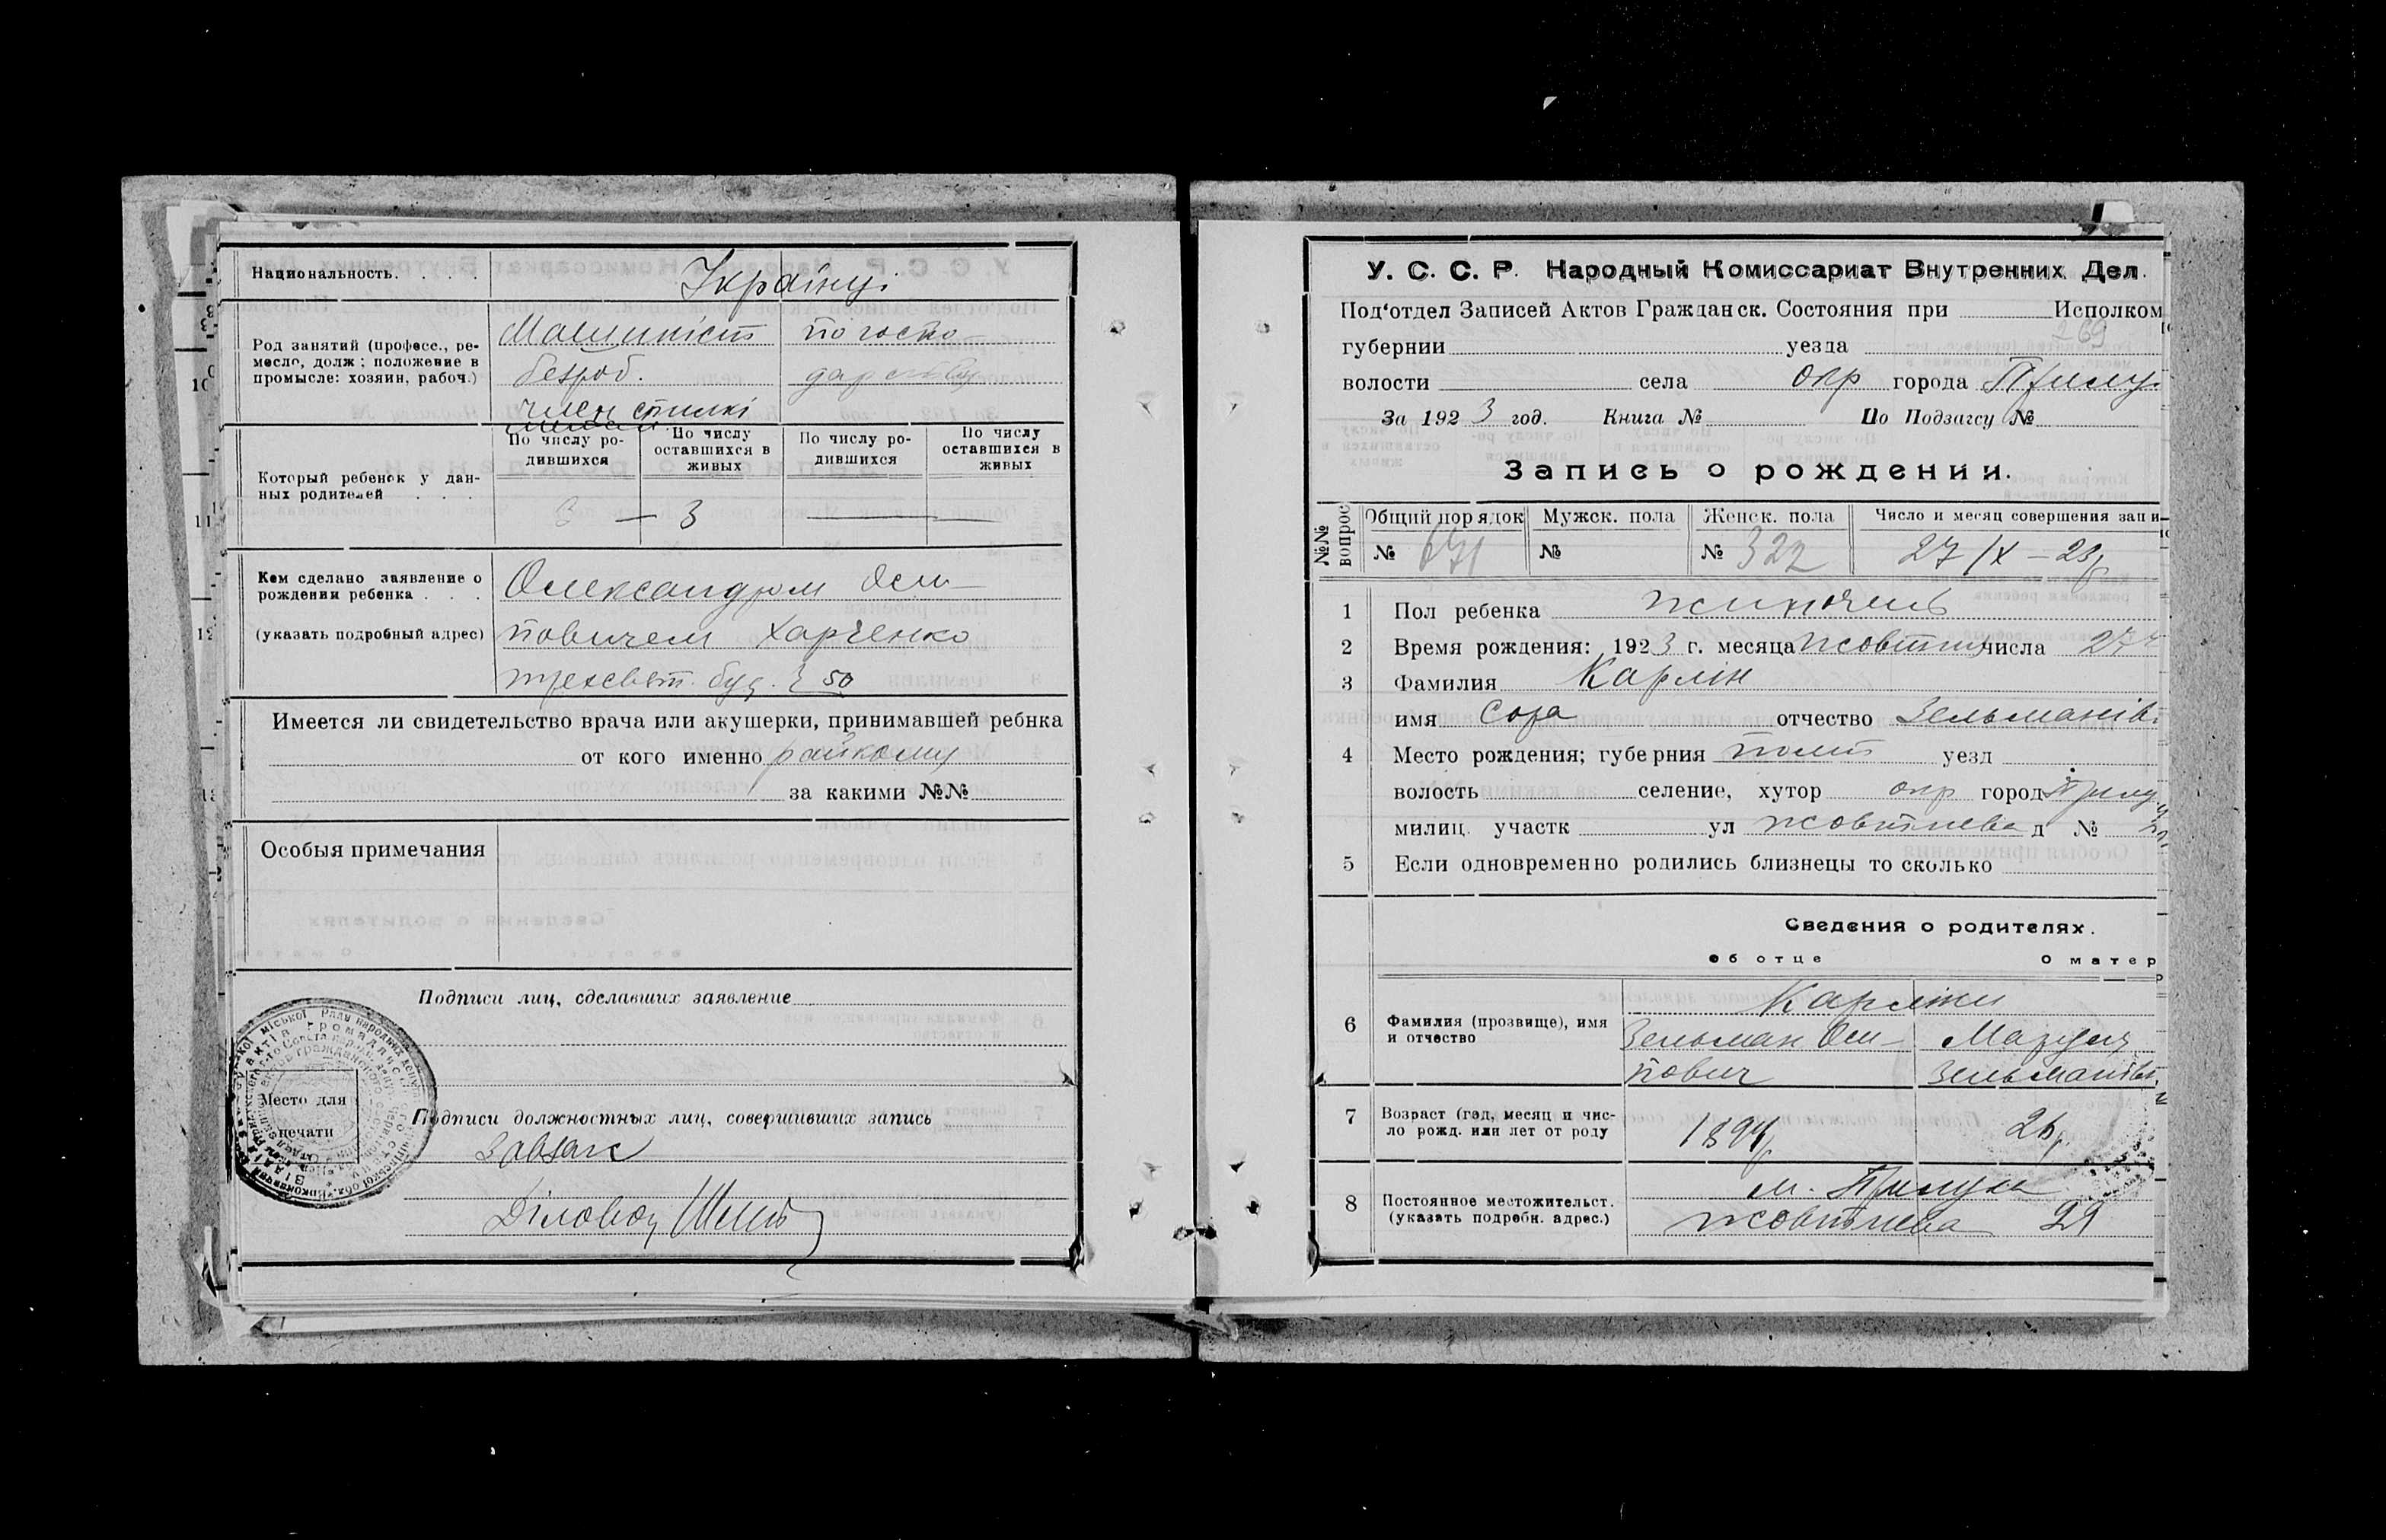 Национальность. . . .
Українці
Род занятий (професс., ре-
месло, долж; положение в
промысле: хозяин, рабоч.)
Машиніст
безроб.
член спилкі
по госпо-
дарству
Который ребенок у дан-
ных родителей . . .
По числу ро-
дившихся
По числу
оставшихся в
живых
По числу ро-
дившихся
По числу
оставшихся в
живых
3 — 3
Кем сделано заявление о
рождении ребенка . . .
(указать подробный адрес)
Олександром Оси-
повичем Харченко
трехсвят. буд. 50
Имеется ли свидетельство врача или акушерки, принимавшей ребнка
от кого именно райкому
за какими №№
Особыя примечания
Подписи лиц, сделавших заявление
Место для
печати
Подписи должностных лиц, совершивших запись
Завзагс
Діловод
У. С. С. Р. Народный Комиссариат Внутренних Дел.
Под'отдел Записей Актов Гражданск. Состояния при Исполком
269
губернии уезда
волости села окр города Прилу.
За 1923 год. Книга № По Подзагсу №
Запись о рождении.
№№ вопрос
Общий порядок Мужск. пола Женск. пола Число и месяц совершения запи-
№ 671 № № 322 27/X — 23р
1 Пол ребенка жиночень
2 Время рождения: 1923 г. месяца жовтня числа 27
3 Фамилия Карлін
имя Сора отчество Зельманів.
4 Место рождения; губерния полт уезд
волость селение, хутор окр город Прилу
милиц. участк ул жовтнева д №
5 Если одновременно родились близнецы то сколько
Сведения о родителях.
об отце О матер
6 Фамилия (прозвище), имя
и отчество
Карліни
Зельман Оси-
пович
Маруся
Зельманівн.
7 Возраст (год, месяц и чис-
ло рожд. или лет от роду
1894р 26р
8 Постоянное местожительст.
(указать подробн. адрес.)
м. Прилуки
жовтнева 29